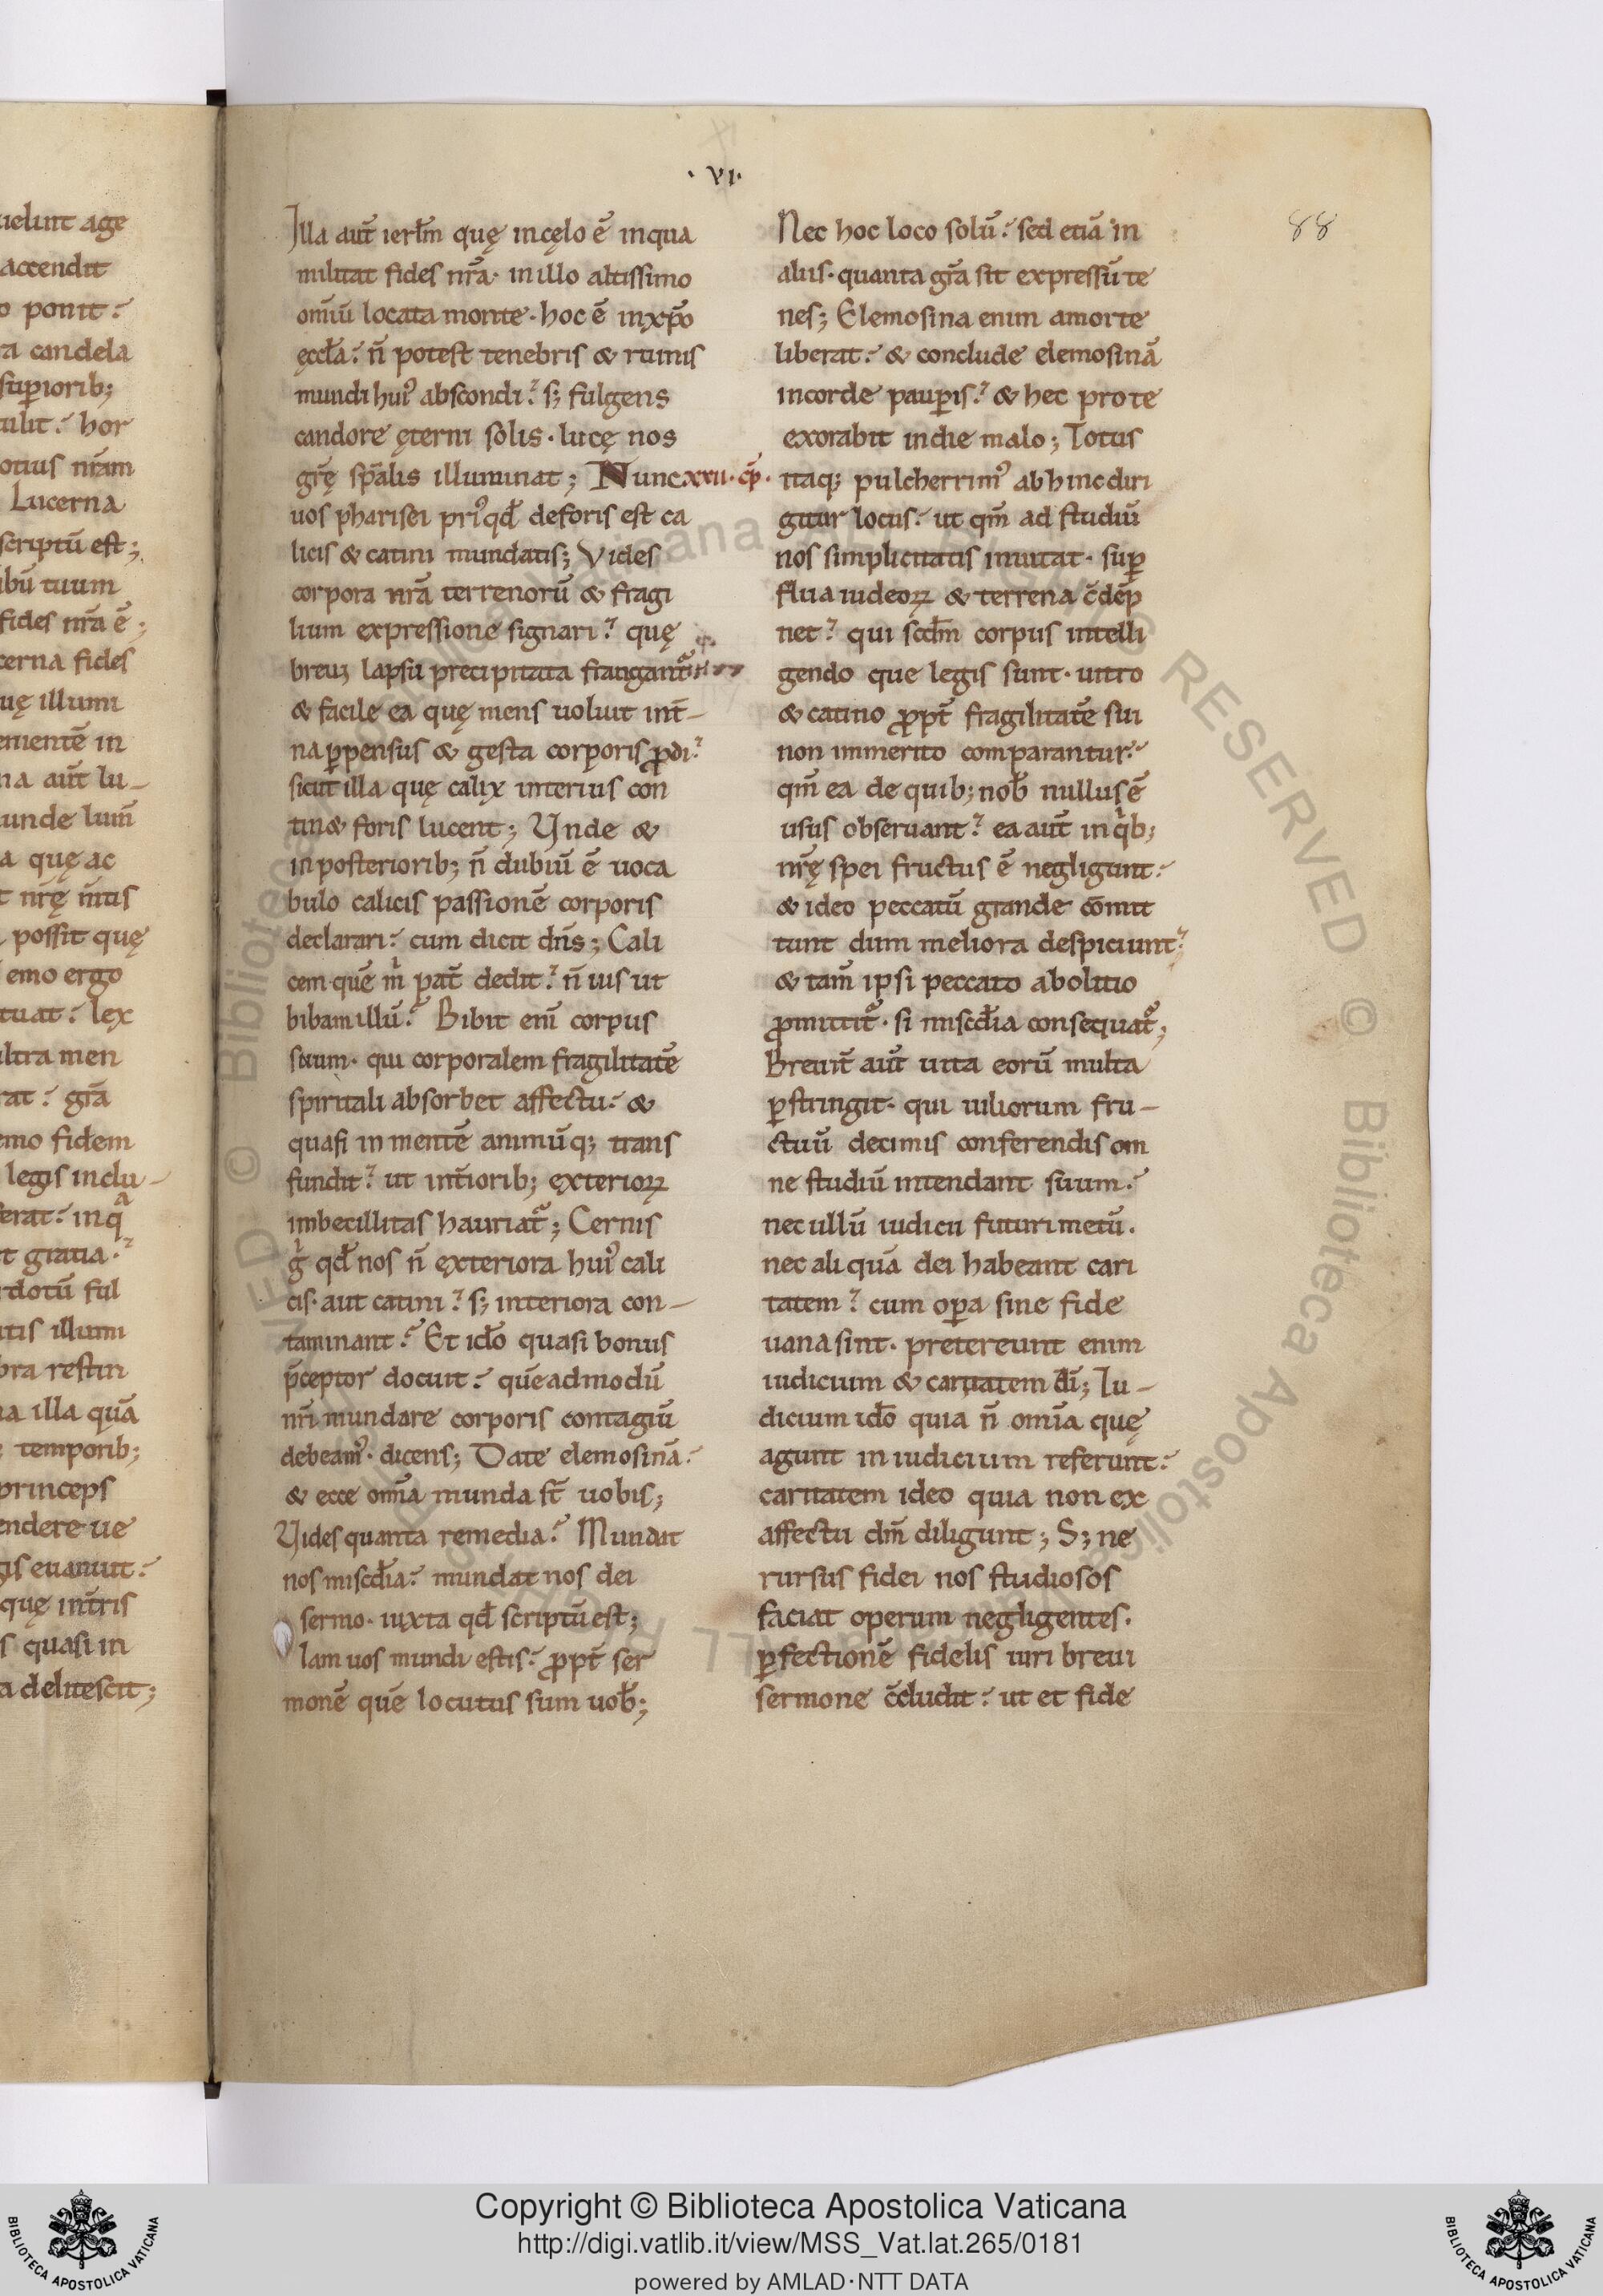 · VI ·
88
Illa aut̄ ierłm quę incęlo ē inqua
militat fides nr̄a· inillo altissimo
om̄iū locata monte· hoc ē inxp̄o
ęccła? n̄ potest tenebris & ruinis
mundi huiꝰ abscondi? s; fulgens
candore ęterni solis· lucę nos
gr̄ę sp̄alis illuminat; Nunc xxii· cp̄·
uos pharisei priꝰ qđ deforis est ca
licis & catini mundatis; Vides
corpora nr̄a terrenorū & fragi
lium expressione signari? quę
breui lapsu precipitata frangant᷑
& facile ea quę mens uoluit int̄-
na ꝑpensus & gesta corporis ꝓdi?
sicut illa quę calix interius con
tin& foris lucent; Vnde &
inposteriorib; n̄ dubiū ē uoca
bulo calicis passionē corporis
declarari? cum dicit dn̄s; Cali
cem quē m̄ pat̄ dedit? n̄ uis ut
bibam illū? Bibit enī corpus
suum· qui corporalem fragilitatē
spiritali absorbet affectu? &
quasi in mentē animūq; trans
fundit? ut int̄iorib; exterioꝝ
imbecillitas hauriat᷑; Cernis
gͥ qđ nos n̄ exteriora huiꝰ cali
cis· aut catini? s; interiora con-
taminant? Et idō quasi bonus
p̄ceptor docuit? quēadmodū
nr̄i mundare corporis contagiū
debeamꝰ· dicens; Date elemosinā?
& ecce om̄ia munda st̄ uobis;
Vides quanta remedia? Mundat
nos miscđia? mundat nos dei
sermo· iuxta qđ scriptū est;
Iam uos mundi estis? ꝓpt̄ ser
monē quē locutus sum uob̄;
Nec hoc loco solū? sed etiā in
aliis· quanta gr̄a sit expressū te
nes; Elemosina enim amorte
liberat? & conclude elemosinā
incorde pauꝑis? & hec pro te
exorabit indie malo; Totus
itaq; pulcherrimꝰ abhinc diri
gitur locus? ut qm̄ ad studiū
nos simplicitatis inuitat· suꝑ
flua iudeoꝝ & terrena c̄dēp
net? qui scđm corpus intelli
gendo que legis sunt· uitro
& catino ꝓpt̄ fragilitatē sui
non immerito comparantur?
qm̄ ea de quib; nob̄ nullus ē
usus obseruant? ea aut̄ in qͥb;
nr̄ę spei fructus ē negligunt?
& ideo peccatū grande cōmit
tunt dum meliora despiciunt?
& tam̄ ipsi peccato abolitio
ꝓmittit᷑· si miscđia consequat᷑;
Breuit̄ aut̄ uita eorū multa
ꝑstringit· qui uiliorum fru-
ctuū decimis conferendis om
ne studiū intendant suum?
nec ullū iudicii futuri metū·
nec aliquā dei habeant cari
tatem? cum oꝑa sine fide
uana sint· pretereunt enim
iudicium & caritatem dī; Iu-
dicium idō quia n̄ om̄ia quę
agunt in iudicium referunt?
caritatem ideo quia non ex
affectu dm̄ diligunt; S; ne
rursus fidei nos studiosos
faciat operum negligentes·
ꝑfectionē fidelis uiri breui
sermone c̄cludit? ut et fide
uelint age
accendit
o ponit?
ra candela
suꝑiorib;
Lucerna
scriptū est;
fides nr̄a ē;
cerna fides
Copyright © Biblioteca Apostolica Vaticana
http://digi.vatlib.it/view/MSS_Vat.lat.265/0181
powered by AMLAD·NTT DATA
BIBLIOTECA APOSTOLICA VATICANA
BIBLIOTECA APOSTOLICA VATICANA